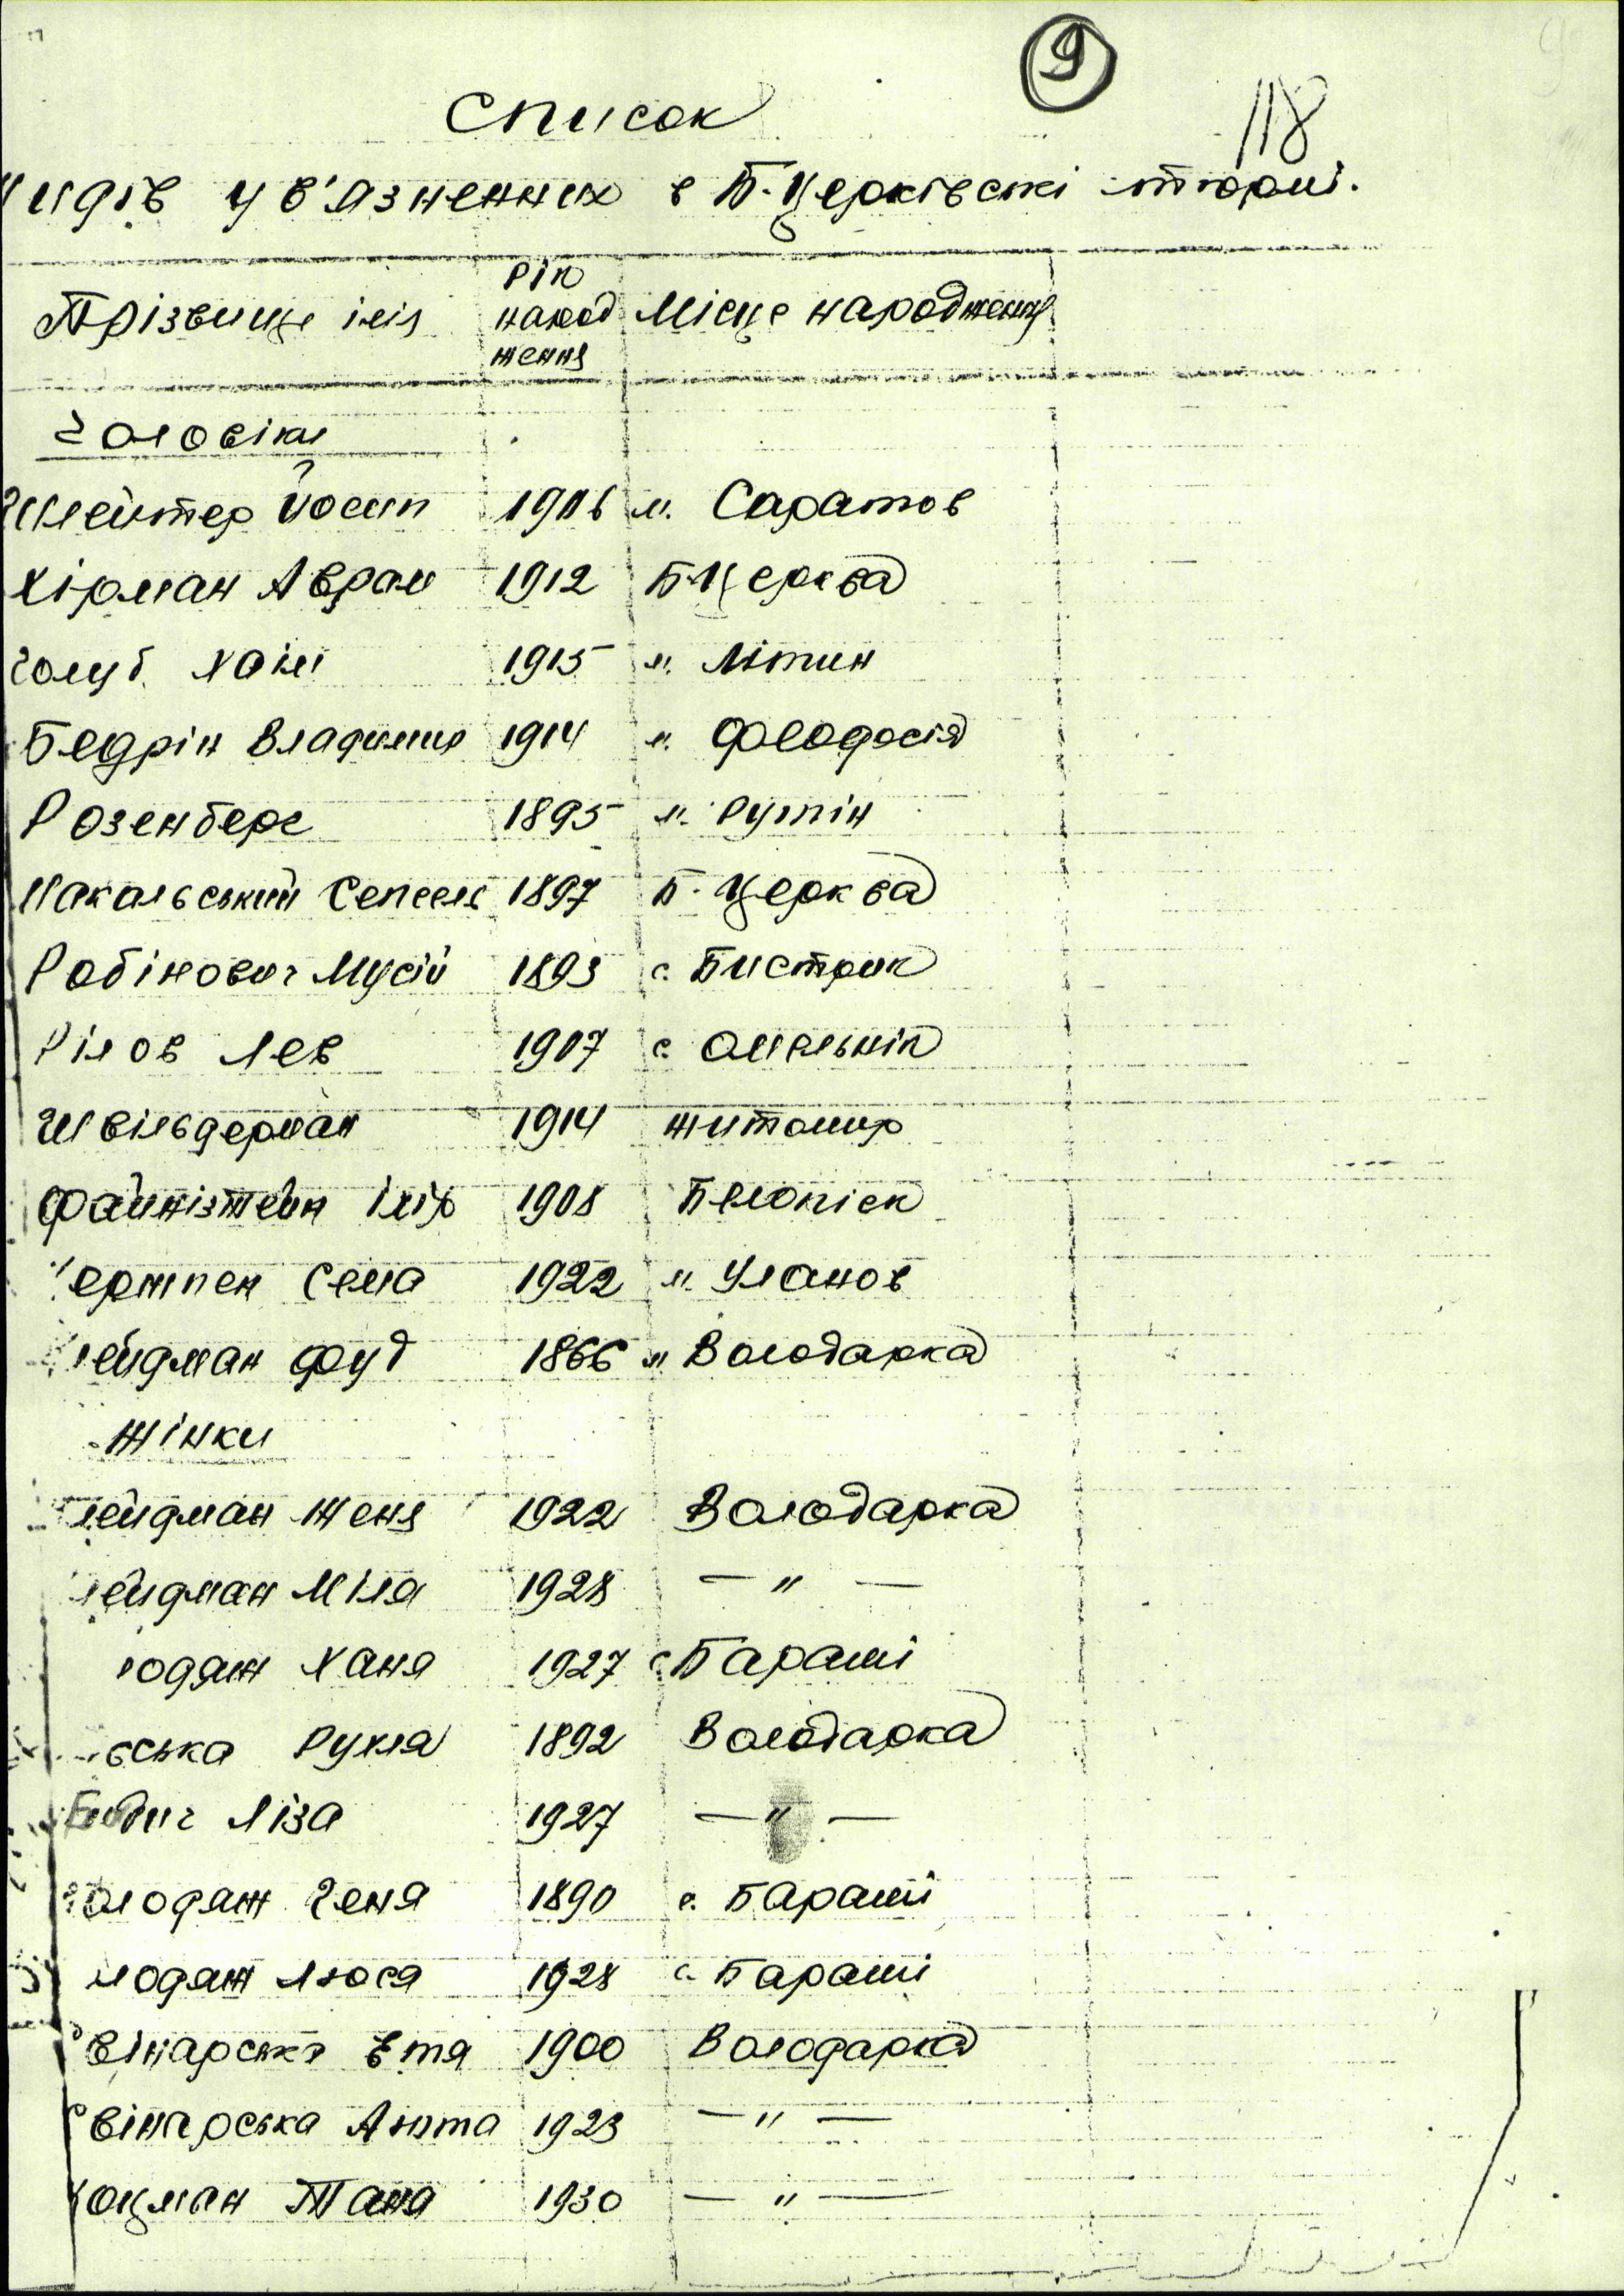 9
118
Список
Жидів ув'язненних в Б.Церківські тюрмі.
Прізвище імія
Рік народ ження
Місце народження
Чоловіки
Шлейтер Йосип 1906 м. Саратов
Хірман Аврам 1912 Б-Церква
Голуб Хаім 1915 м. Літин
Бедрін Владимир 1914 м. Феодосія
Розенберг 1895 м. Ружін
Макальський 1897 Б. Церква
Рабінович Мусій 1893 с. Бистрик
Рілов Лев 1907 с. Омельнік
Швільдерман 1914 Житомир
Файнізтейн 1908
Сема 1922 м. Уланов
ейдман 1866 м Володарка
Жінки
ейдман Женя 1922 Володарка
ейдман Міля 1928 — " —
одяж Ханя 1927 с Параші
вська Рухля 1892 Володарка
Ліза 1927 — " —
олодяж Геня 1890 с. Параші
лодяж Люся 1928 с. Параші
Вінарська Етя 1900 Володарка
Вінарська Анюта 1923 — " —
Коцман Таня 1930 — " —